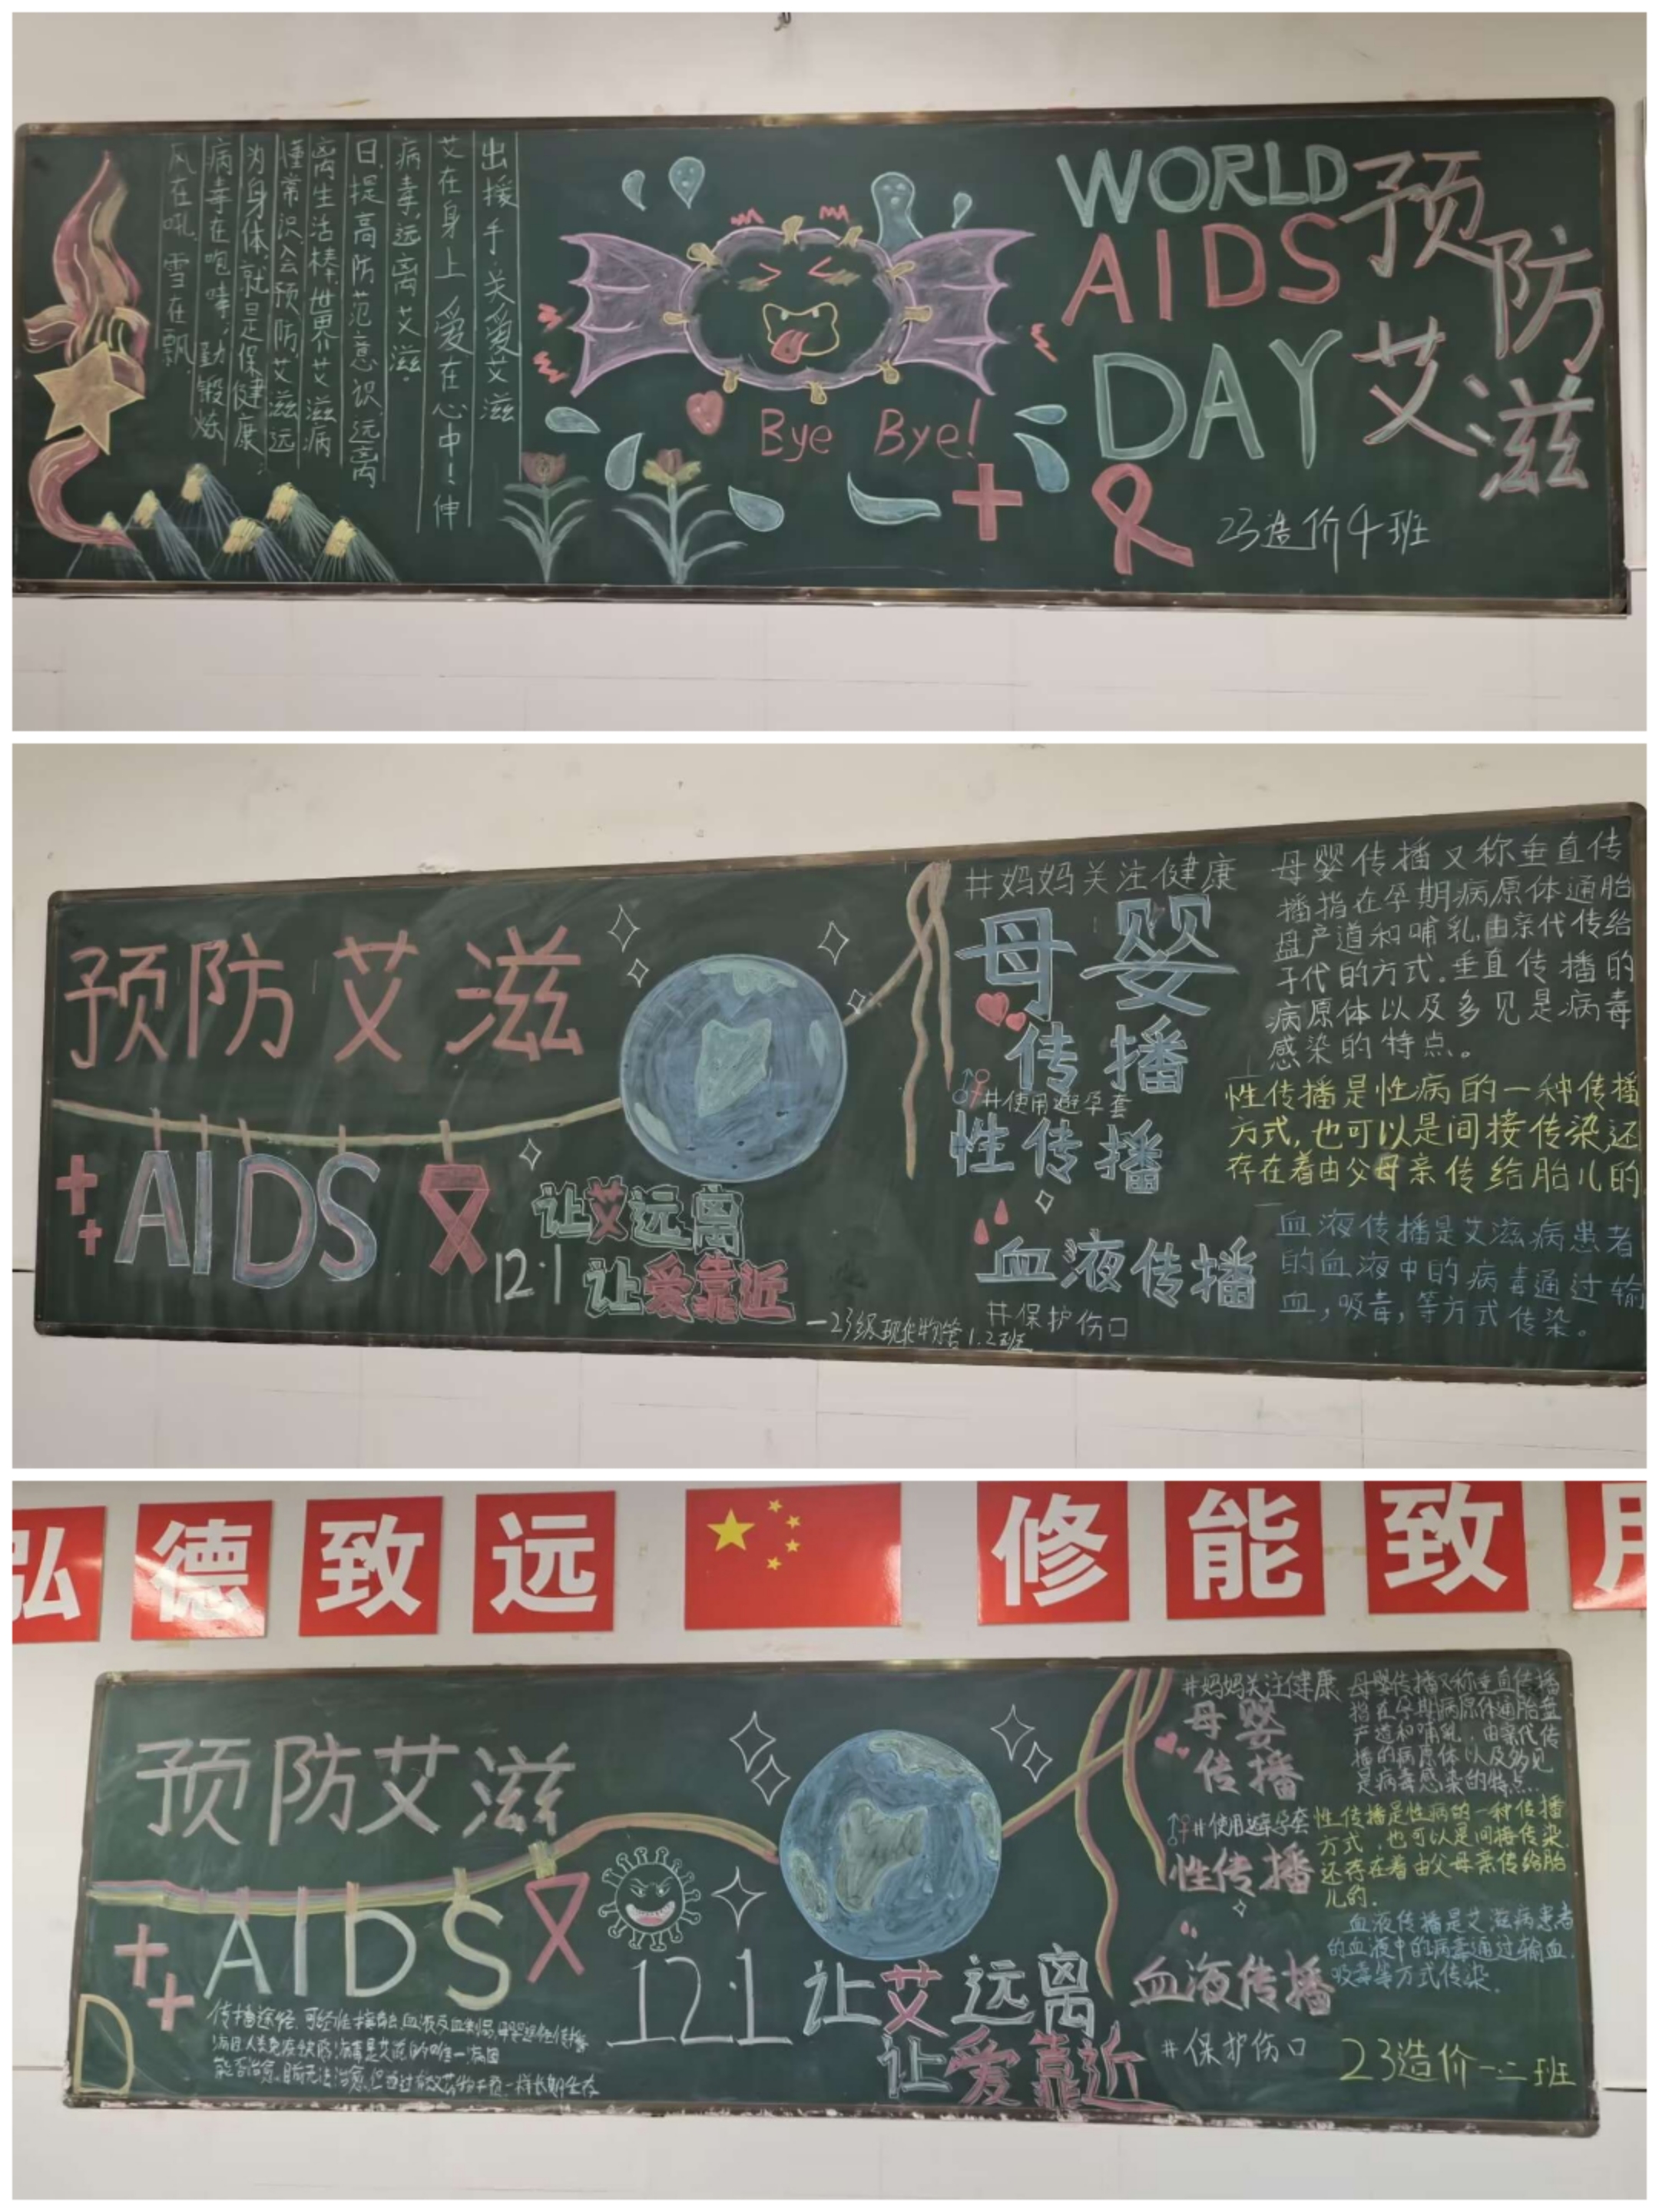 WORLD
AIDS
DAY
预防
艾滋
23造价4班
Bye Bye!
出援手,关爱艾滋
艾在身上 爱在心中!伸
病毒,远离艾滋。
日,提高防范意识,远离
离生活棒,世界艾滋病
懂常识,会预防,艾滋远
为身体,就是保健康,
病毒在咆哮,勤锻炼
风在吼,雪在飘,
预防艾滋
AIDS
12·1
让艾远离
让爱靠近
—23级现代物管1.2班
#妈妈关注健康
母婴
传播
#使用避孕套
性传播
血液传播
#保护伤口
母婴传播又称垂直传
播指在孕期病原体通胎
盘产道和哺乳,由亲代传给
子代的方式.垂直传播的
病原体以及多见是病毒
感染的特点。
性传播是性病的一种传播
方式,也可以是间接传染还
存在着由父母亲传给胎儿的
血液传播是艾滋病患者
的血液中的病毒通过输
血,吸毒,等方式传染。
弘德致远
修能致用
预防艾滋
AIDS
传播途径:可经性接触,血液及血制品,母婴
病因:人类免疫缺陷病毒是艾滋的唯一病因
能否治愈:目前无法治愈,但通过有效
12·1
让艾远离
让爱靠近
#妈妈关注健康
母婴
传播
#使用避孕套
性传播
血液传播
#保护伤口
母婴传播又称垂直传播
指在孕期病原体通胎盘
产道和哺乳,由亲代传
播的病原体以及多见
是病毒感染的特点.
性传播是性病的一种传播
方式,也可以是间接传染.
还存在着由父母亲传给胎
儿的.
血液传播是艾滋病患者
的血液中的病毒通过输血.
吸毒等方式传染.
23造价一.二班